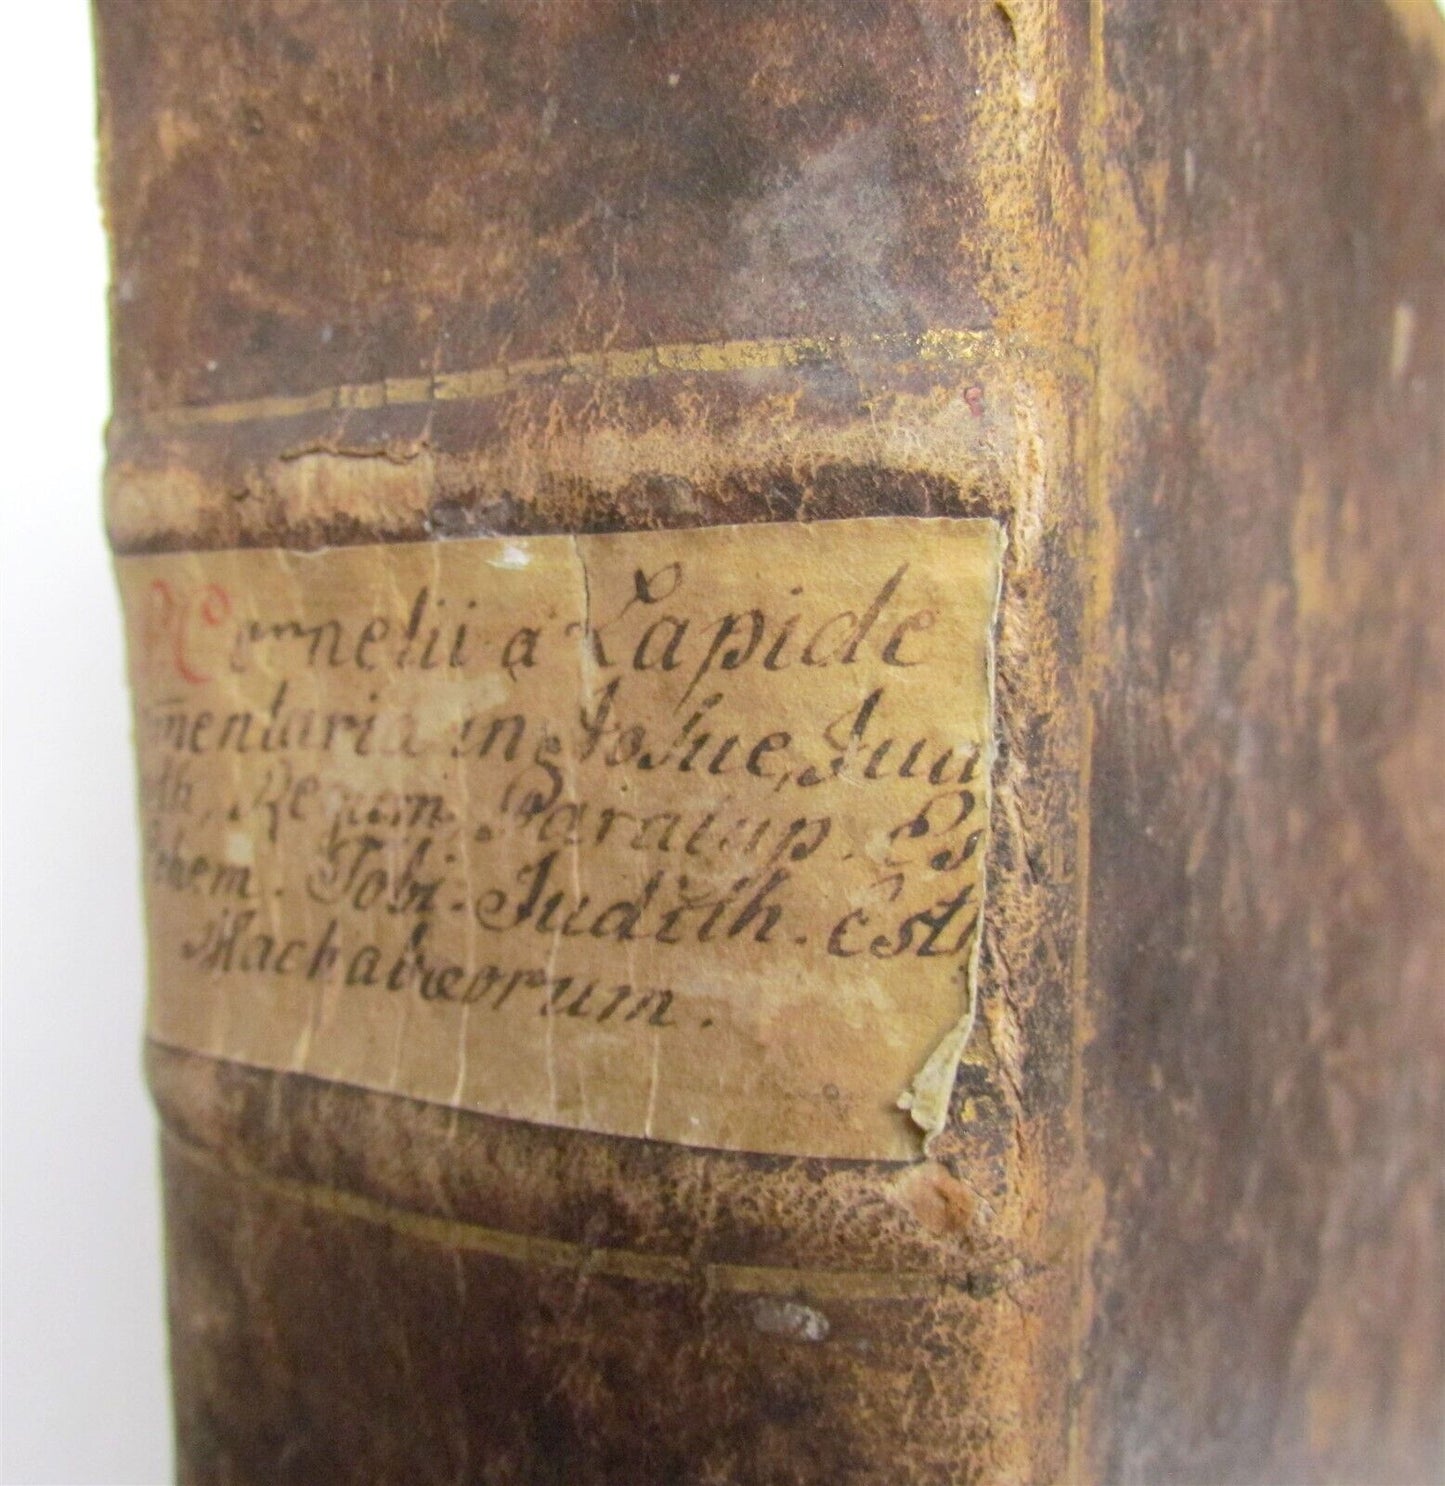 Cornelii a Lapide
om̅entaria in Josue, Jud
th, Regum, Paralip. Es
ehem. Tobi. Judith. Esth
Machabæorum.